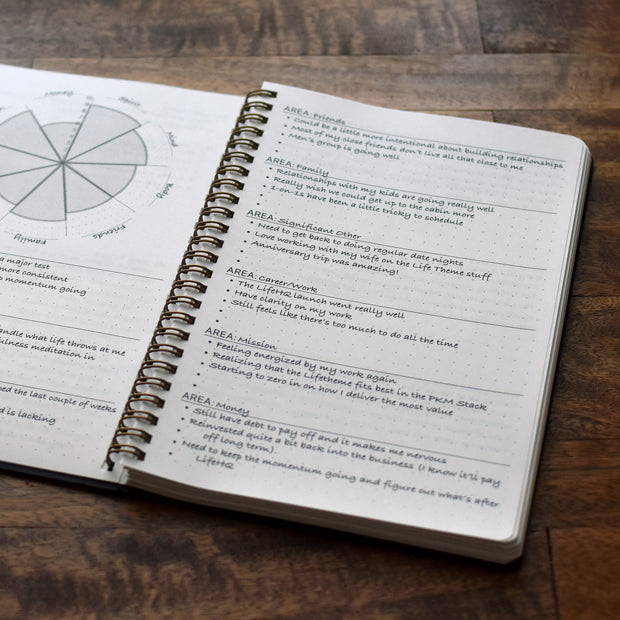 Money
Spirit
Mind
Body
Friends
Family
a major test
more consistent
o momentum going
andle what life throws at me
fulness meditation in
ped the last couple of weeks
d is lacking
AREA: Friends
• Could be a little more intentional about building relationships
• Most of my close friends don't live all that close to me
• Men's group is going well
AREA: Family
• Relationships with my kids are going really well
• Really wish we could get up to the cabin more
• 1-on-1s have been a little tricky to schedule
AREA: Significant Other
• Need to get back to doing regular date nights
• Love working with my wife on the Life Theme stuff
• Anniversary trip was amazing!
AREA: Career/Work
• The LifeHQ launch went really well
• Have clarity on my work
• Still feels like there's too much to do all the time
AREA: Mission
• Feeling energized by my work again
• Realizing that the Lifetheme fits best in the PKM Stack
• Starting to zero in on how I deliver the most value
AREA: Money
• Still have debt to pay off and it makes me nervous
• Reinvested quite a bit back into the business (I know it'll pay
off long term).
• Need to keep the momentum going and figure out what's after
LifeHQ